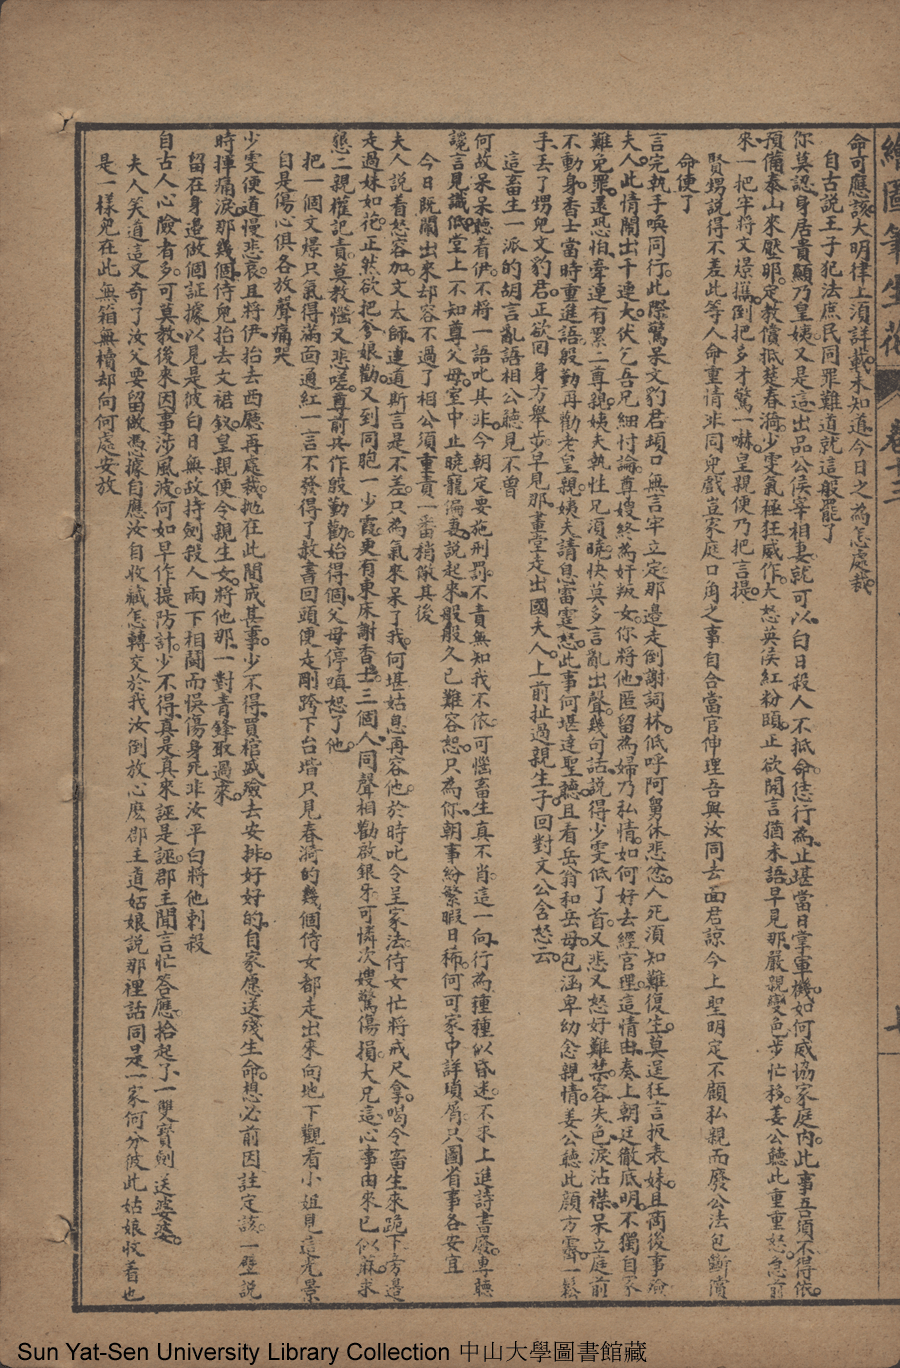 繪圖筆生花 卷十三
命可應該大明律上須詳載未知道今日之為怎處哉
自古説王子犯法庶民同罪難道就這般罷了
你莫認身居貴顯乃皇姨又是這出品公侯宰相妻就可以白日殺人不抵命恁行為止堪當日掌軍機如何威協家庭内此事吾須不得依
預備泰山來壓那定教償抵楚春漪少雯氣極狂威作大怒英侯紅粉頤正欲開言猶未語早見那嚴親變色步忙移姜公聽此重重怒急前
來一把牢將文燝攜倒把多才驚一嚇皇親便乃把言提
賢甥說得不差此等人命重情非同兒戲豈家庭口角之事自合當官伸理吾與汝同去面君諒今上聖明定不顧私親而廢公法包斷償
命便了
言完執手喚同行此際驚呆文豹君頃口無言牢立定那邊走倒謝詞林低呼阿舅休悲忿人死須知難復生莫逞狂言扳表妹且商後事殮
夫人此情鬧出干連大伏乞吾兄細忖論尊嫂終為奸叛女你將他匿留為婦乃私情如何好去經官理這情由奏上朝廷徹底明不獨自家
難免罪還恐怕牽連有累二尊親姨夫執性兄須曉快莫多言亂出聲幾句話説得少雯低了首又悲又怒好難禁容失色淚沾襟呆立庭前
不動身香士當時重進語殷勤再勸老皇親姨夫請息雷霆怒此事何堪達聖聽且看岳翁和岳母包涵卑幼念親情姜公聽此顏方霽一鬆
手丢了甥兒文豹君正欲回身方舉步早見那畫堂走出國夫人上前扯過親生子回對文公含怒云
這畜生一派的胡言亂語相公聽見不曾
何故呆呆聽着伊不將一語叱其非今朝定要施刑罰不責無知我不依可惱畜生真不肖這一向行為種種似昏迷不求上進詩書廢專聽
讒言見識低堂上不知尊父母室中止曉寵偏妻說起來般般久已難容恕只為你朝事紛繁暇日稀何可家中詳瑣屑只圖省事各安宜
今日既鬧出來却容不過了相公須重責一番稍儆其後
夫人說着怒容加文太師連道斯言是不差只為氣來呆了我何堪姑息再容他於時叱令呈家法侍女忙將戒尺拿喝令畜生來跪下旁邊
走過妹如花正然欲把爹娘勸又到同胞一少霞更有東床謝香士三個人同聲相勸啟銀牙可憐次嫂驚傷損大兄這心事由來已似麻求
懇二親權記責莫教惱又悲嗟尊前共作殷勤勸始得個父母停嗔怒了他
把一個文燝只氣得滿面通紅一言不發得了赦書回頭便走剛跨下台堦只見春漪的幾個侍女都走出來向地下觀看小姐見這光景
自是傷心俱各放聲痛哭
少雯便道慢悲哀且將伊抬去西廳再處裁抛在此間成甚事少不得買棺盛殮去安排好好的自家愿送殘生命想必前因註定該一壁説
時揮痛淚那幾個侍兒抬去文裙釵皇親便令親生女將他那一對青鋒取過來
留在身邊做個証據以見是彼白日無故持劍殺人兩下相鬪而悮傷身死非汝平白將他刺殺
自古人心險者多可莫教後來因事涉風波何如早作提防計少不得真是真來誣是誣郡主聞言忙答應拾起了一雙寳劍送婆婆
夫人笑道這又奇了汝父要留做憑據自應汝自收藏怎轉交於我汝倒放心麽郡主道姑娘說那裡話同是一家何分彼此姑娘收着也
是一樣兒在此無箱無櫝却向何處安放
Sun Yat-Sen University Library Collection 中山大學圖書館藏